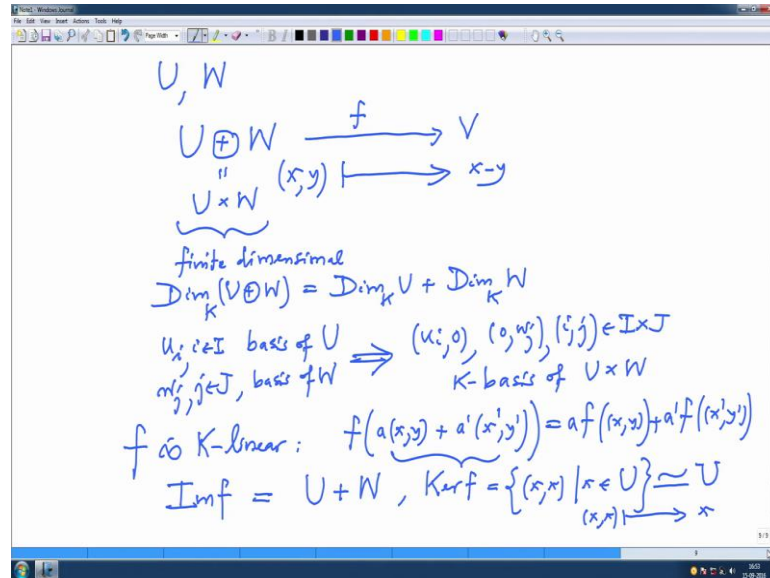 Note1 - Windows Journal
File Edit View Insert Actions Tools Help
Page Width
U, W
U ⊕ W —f→ V
= U × W (x, y) ⟼ x-y
finite dimensional
Dim_K (U⊕W) = Dim_K U + Dim_K W
u_i, i∈I basis of U ⟹ (u_i, 0), (0, w_j), (i, j) ∈ I×J
w_j, j∈J, basis of W K-basis of U × W
f is K-linear: f(a(x,y) + a'(x',y')) = a f((x,y)) + a' f((x',y'))
Im f = U + W, Ker f = {(x, x) | x ∈ U} ≃ U
(x, x) ⟼ x
9/9
9
16:53
15-09-2016